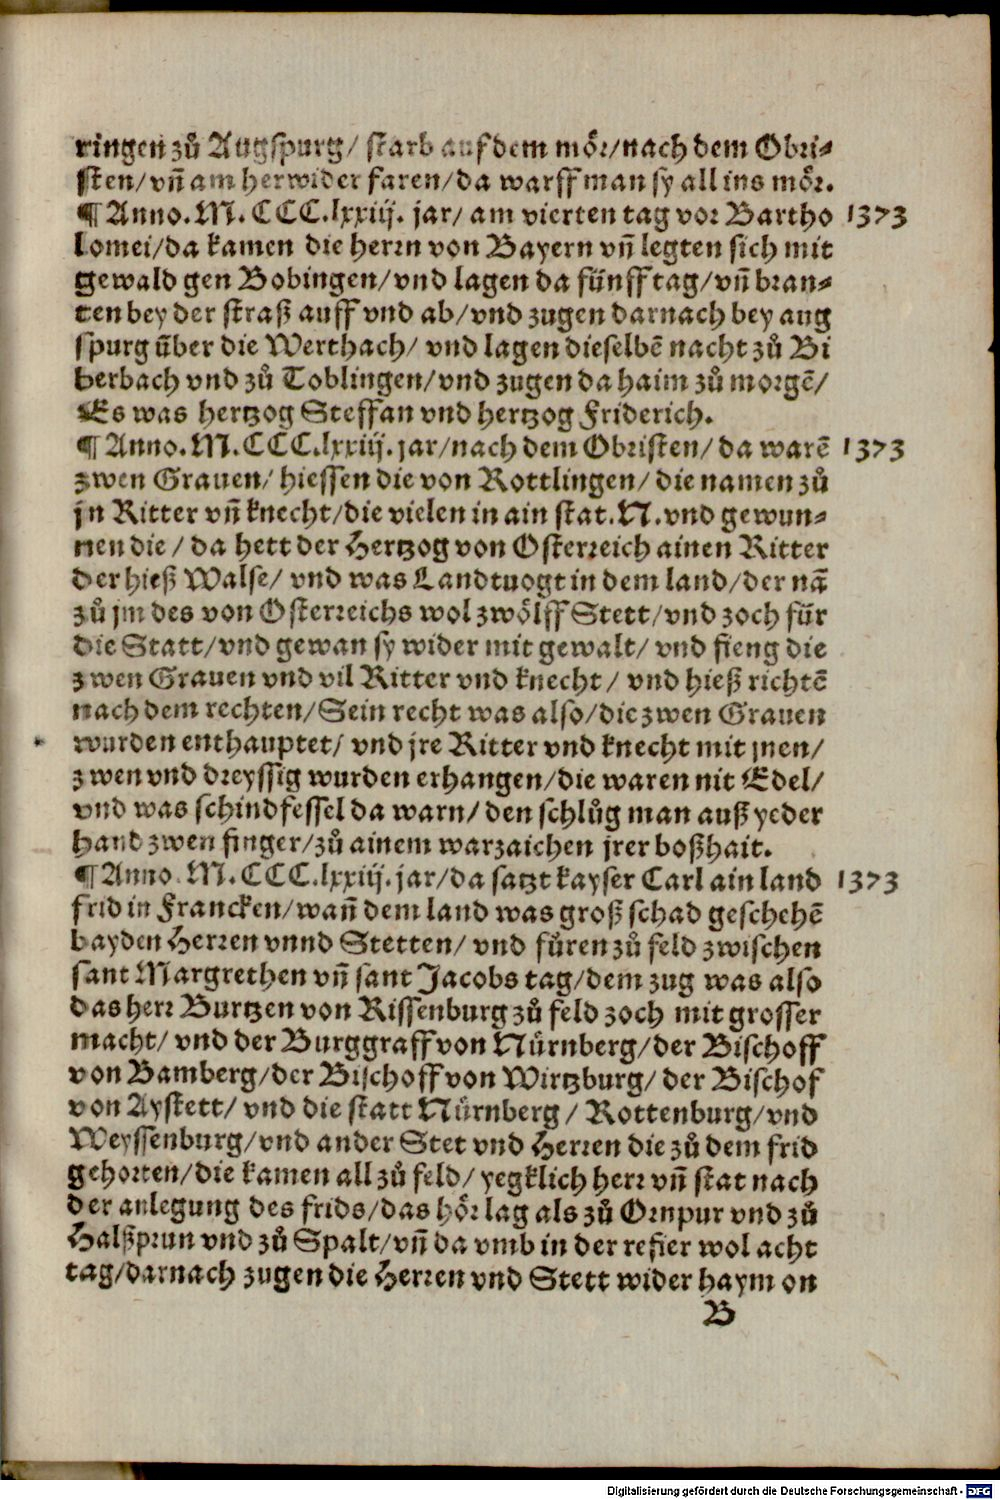 ringen zů Augspurg/ starb auf dem mör/nach dem Obri-
sten/vñ am herwider faren/da warff man sy all ins mör.
¶ Anno. M. CCC.lxxiij. jar/ am vierten tag vor Bartho 1373
lomei/da kamen die herrn von Bayern vñ legten sich mit
gewald gen Bobingen/vnd lagen da fünff tag/vñ bran-
ten bey der straß auff vnd ab/vnd zugen darnach bey aug
spurg über die Werthach/ vnd lagen dieselbē nacht zů Bi
berbach vnd zů Toblingen/vnd zugen da haim zů morgē/
Es was hertzog Steffan vnd hertzog Friderich.
¶ Anno. M. CCC.lxxiij. jar/nach dem Obristen/ da warē 1373
zwen Grauen/ hiessen die von Rottlingen/ die namen zů
jn Ritter vñ knecht/die vielen in ain stat. N. vnd gewun-
nen die / da hett der Hertzog von Osterreich ainen Ritter
der hieß Walse/ vnd was Landtuogt in dem land/der nā
zů jm des von Osterreichs wol zwölff Stett/vnd zoch für
die Statt/vnd gewan sy wider mit gewalt/ vnd fieng die
zwen Grauen vnd vil Ritter vnd knecht / vnd hieß richtē
nach dem rechten/Sein recht was also/die zwen Grauen
wurden enthauptet/ vnd jre Ritter vnd knecht mit jnen/
zwen vnd dreyssig wurden erhangen/die waren nit Edel/
vnd was schindfessel da warn/ den schlůg man auß yeder
hand zwen finger/zů ainem warzaichen jrer boßhait.
¶ Anno. M. CCC.lxxiij. jar/da satzt kayser Carl ain land 1373
frid in Francken/wañ dem land was groß schad geschehē
bayden Herren vnnd Stetten/ vnd fůren zů feld zwischen
sant Margrethen vñ sant Jacobs tag/dem zug was also
das herr Burtzen von Rissenburg zů feld zoch mit grosser
macht/ vnd der Burggraff von Nürnberg/der Bischoff
von Bamberg/der Bischoff von Wirtzburg/ der Bischof
von Aystett/ vnd die statt Nürnberg / Rottenburg/vnd
Weyssenburg/vnd ander Stet vnd Herren die zů dem frid
gehorten/die kamen all zů feld/ yegklich herr vñ stat nach
der anlegung des frids/das hör lag als zů Ornpur vnd zů
Halßprun vnd zů Spalt/vñ da vmb in der refier wol acht
tag/darnach zugen die Herren vnd Stett wider haym on
B
Digitalisierung gefördert durch die Deutsche Forschungsgemeinschaft - DFG